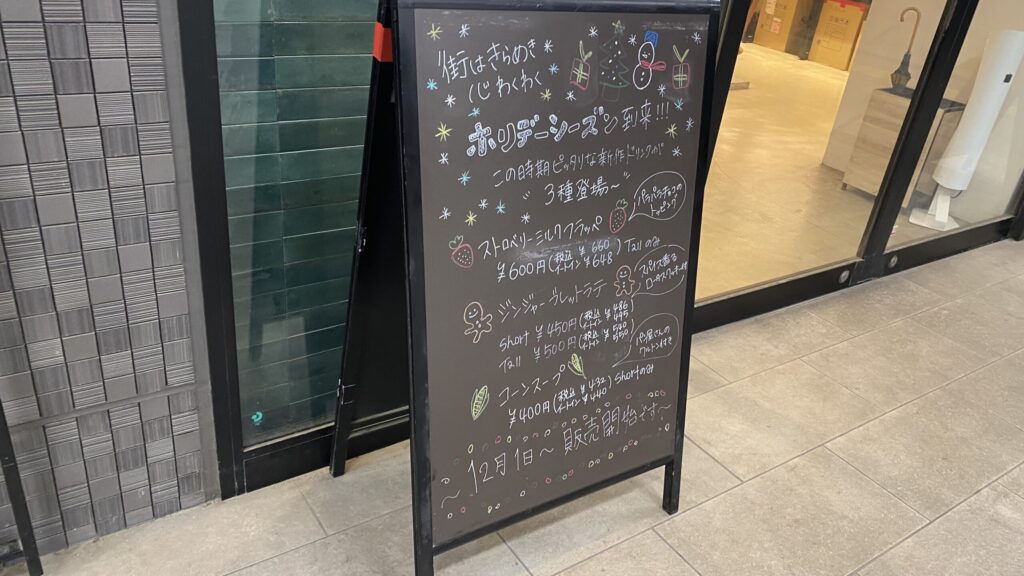 街はきらめき
心わくわく
ホリデーシーズン到来!!!
この時期ピッタリな新作ドリンクが
〃3種登場〜〃
ストロベリーミルクフラッペ
パチパチチョコの
トッピング
¥600円(税込 ¥660 イートイン ¥648) Tallのみ
ジンジャーブレットラテ
スパイス香る
short ¥450円(税込 ¥486 イートイン ¥495)
Tall ¥500円(税込 ¥540 イートイン ¥550)
パン屋さんの
クルトン付き
コーンスープ
¥400円(税込 ¥432 イートイン ¥440) shortのみ
〜12月1日〜販売開始です〜